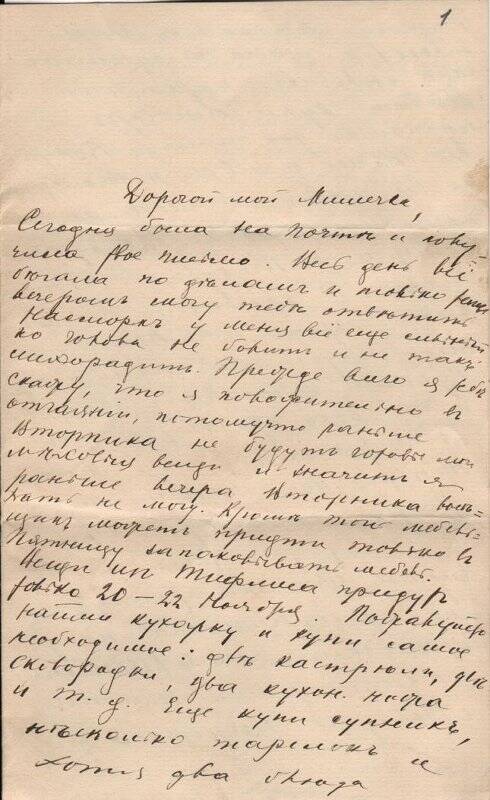 1
Дорогой мой Мишечка,
Сегодня была на почтѣ и полу-
чила твое письмо. Весь день всё
бѣгала по дѣламъ и только
вечеромъ могу тебѣ отвѣтить
Насморкъ у меня всё еще сильный
но голова не болитъ и не такъ
лихорадитъ. Прежде всего я тебѣ
скажу, что я положительно въ
отчаяніи, потомучто раньше
Вторника не будутъ готовы мои
мѣховыя вещи и значитъ я
раньше вечера Вторника выѣ-
хать не могу. Кромѣ того мебель-
щикъ можетъ придти только въ
Пятницу запаковывать мебель.
Вещи изъ Тифлиса придутъ
только 20–22 Ноября. Пожалуйста
найми кухарку и купи самое
необходимое: двѣ кастрюли, двѣ
сковородки, два кухон. ножа
и т. д. Еще купи супникъ,
нѣсколько тарелокъ и
хотя два блюда